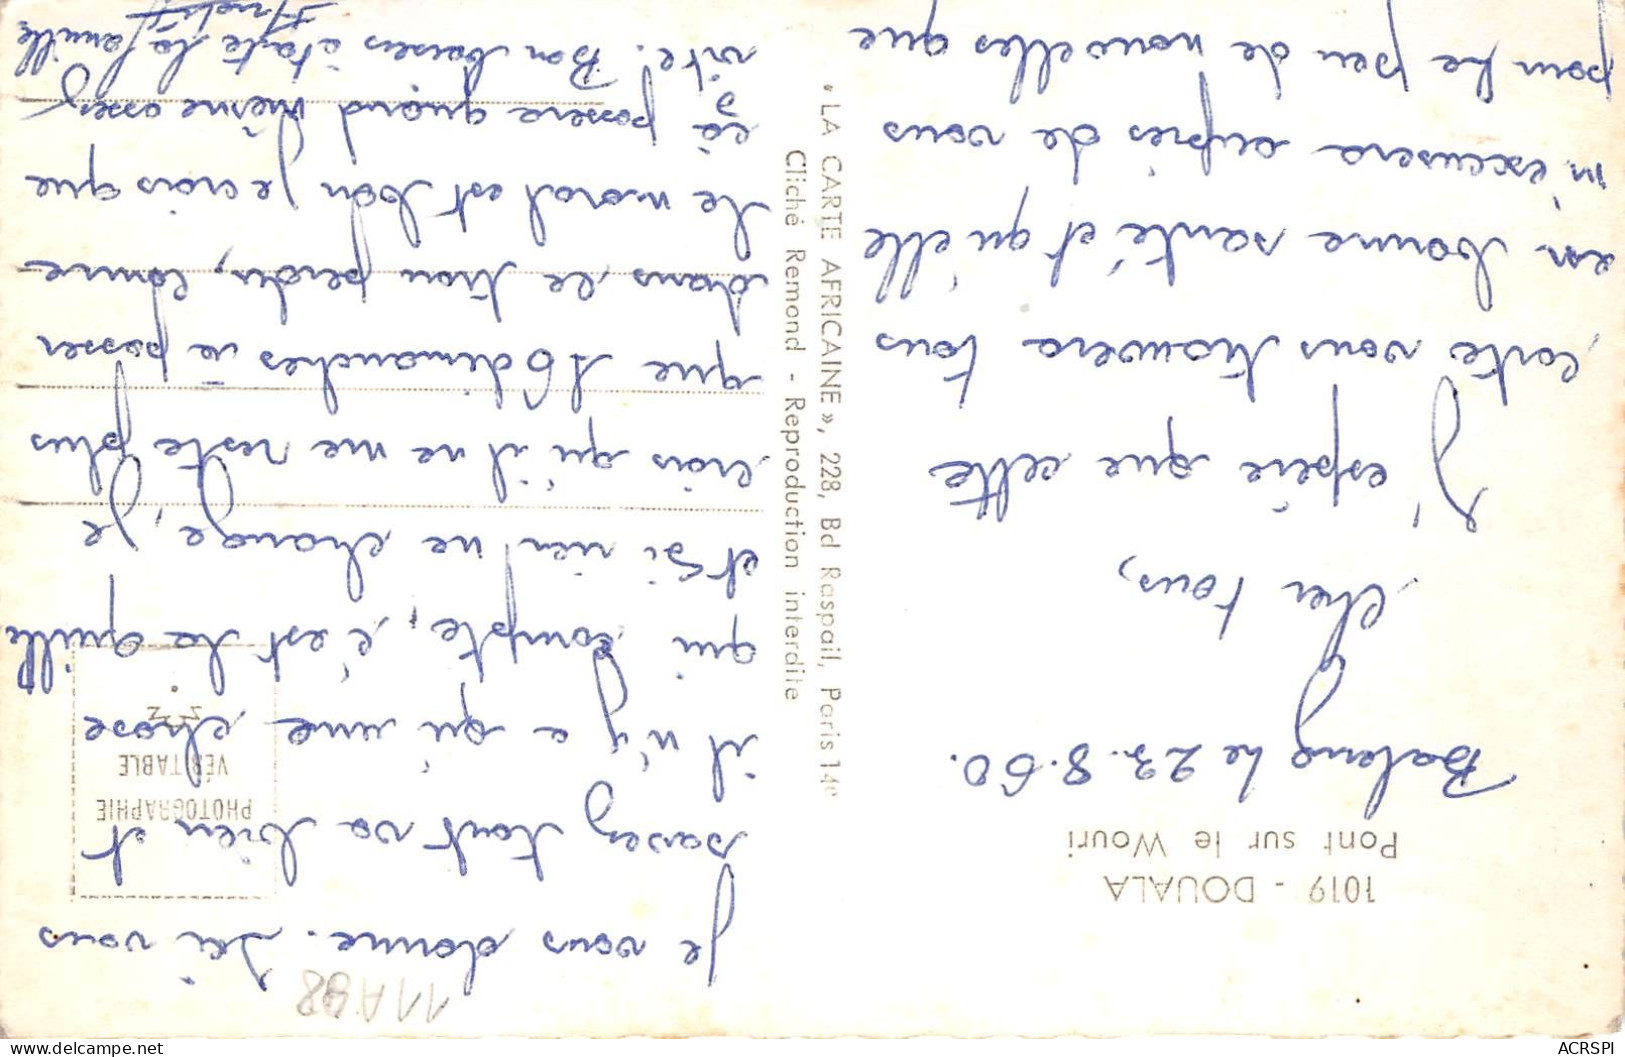 1019 - DOUALA
Pont sur le Wouri
Baleng le 23.8.60.
Cher tous,
J'espère que cette
carte vous trouvera tous
en bonne santé et qu'elle
m'excusera auprès de vous
pour le peu de nouvelles que
je vous donne. Ici vous
savez tout va bien et
il n'y a qu'une chose
qui compte, c'est la quille
et si rien ne change, je
crois qu'il ne me reste plus
que 16 dimanches à passer
dans ce trou perdu, comme
le moral est bon je crois que
ça passera quand même assez
vite. Bon baisers à toute la famille
"LA CARTE AFRICAINE», 228, Bd Raspail, Paris 14e
Cliché Remond - Reproduction interdite
PHOTOGRAPHIE
VÉRITABLE
11A98
ACRSPI